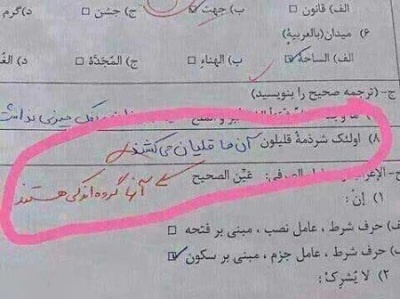 الف) قانون ب) جهت ج) حُسْن د) گرم
۶) میدان (بالعربیة)
الف) الساحة ب) الهناء ج) المُجِدَّة د)
ج-(ترجمه صحیح را بنویسید)
۸) اولئک شرذمة قلیلون آن ها قلیان می کشند
آنها گروه اندکی هستند
عَیّن الصحیح
۱) اِنْ:
حرف شرط، عامل نصب، مبنی بر فتحه
حرف شرط، عامل جزم، مبنی بر سکون
۲) لا یُشرِک: